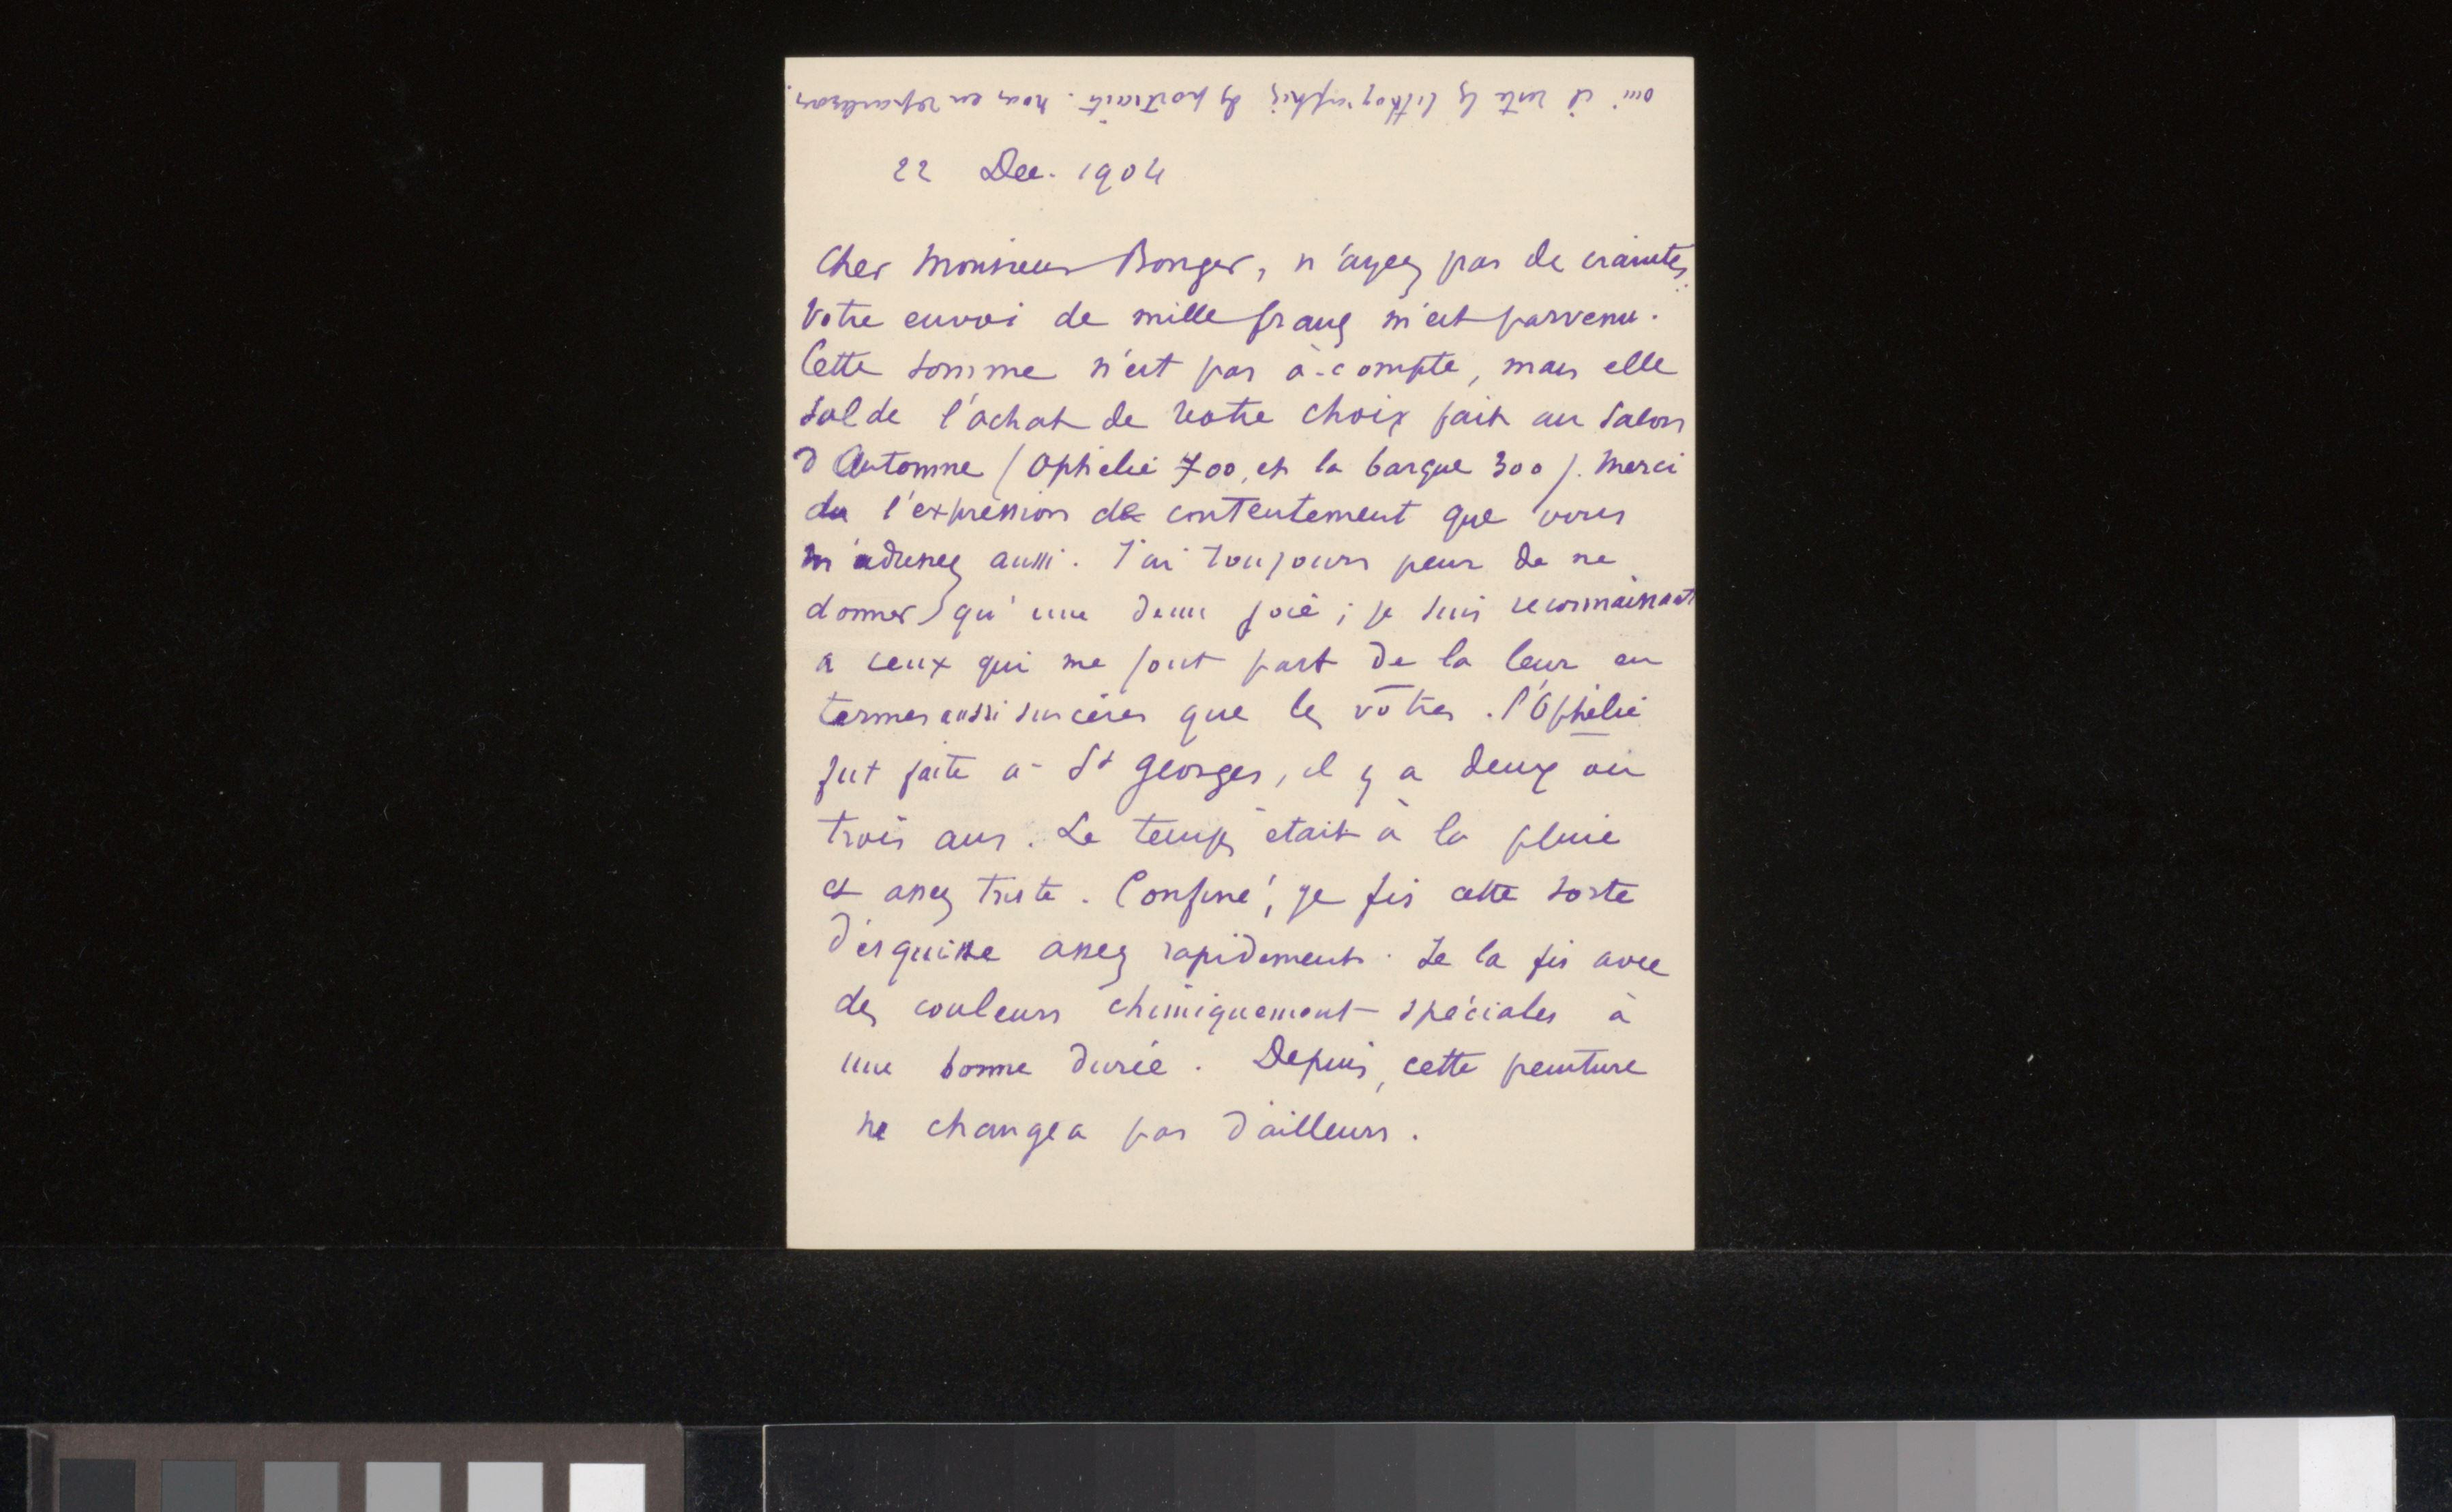 oui il reste les lithographies des portraits. nous en reparlerons.
22 Dec. 1904
Cher Monsieur Bonger, n'ayez pas de craintes.
Votre envoi de mille francs m'est parvenu.
Cette somme n'est pas à-compte, mais elle
solde l'achat de votre choix fait au Salon
d'Automne (Ophélie 700, et la barque 300). Merci
de l'expression de contentement que vous
m'adressez aussi. J'ai toujours peur de ne
donner qu'une demi joie ; je suis reconnaissant
à ceux qui me font part de la leur en
termes aussi sincères que les vôtres. l'Ophélie
fut faite à St Georges, il y a deux ou
trois ans. Le temps était à la pluie
et assez triste. Confiné, je fis cette sorte
d'esquisse assez rapidement. Je la fis avec
des couleurs chimiquement spéciales à
une bonne durée. Depuis, cette peinture
ne changea pas d'ailleurs.